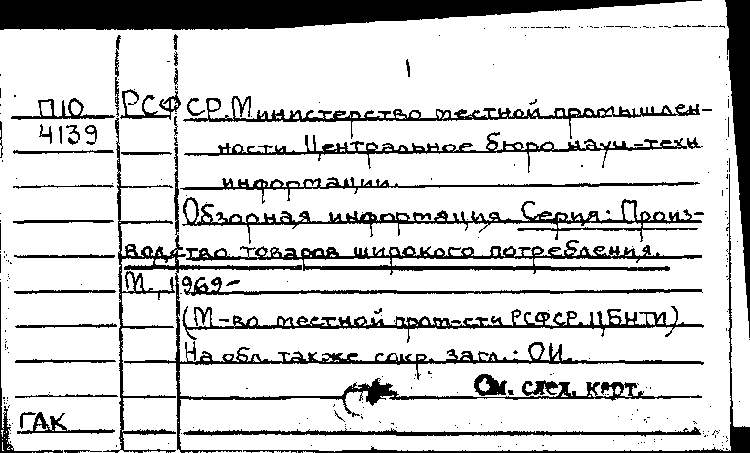 1
П10
4139
РСФСР. Министерство местной промышлен-
ности. Центральное бюро науч.-техн.
информации.
Обзорная информация. Серия: Произ-
водство товаров широкого потребления.
М., 1969-
(М-во местной пром-сти РСФСР. ЦБНТИ).
На обл. также сокр. загл.: ОИ.
См. след. карт.
ГАК